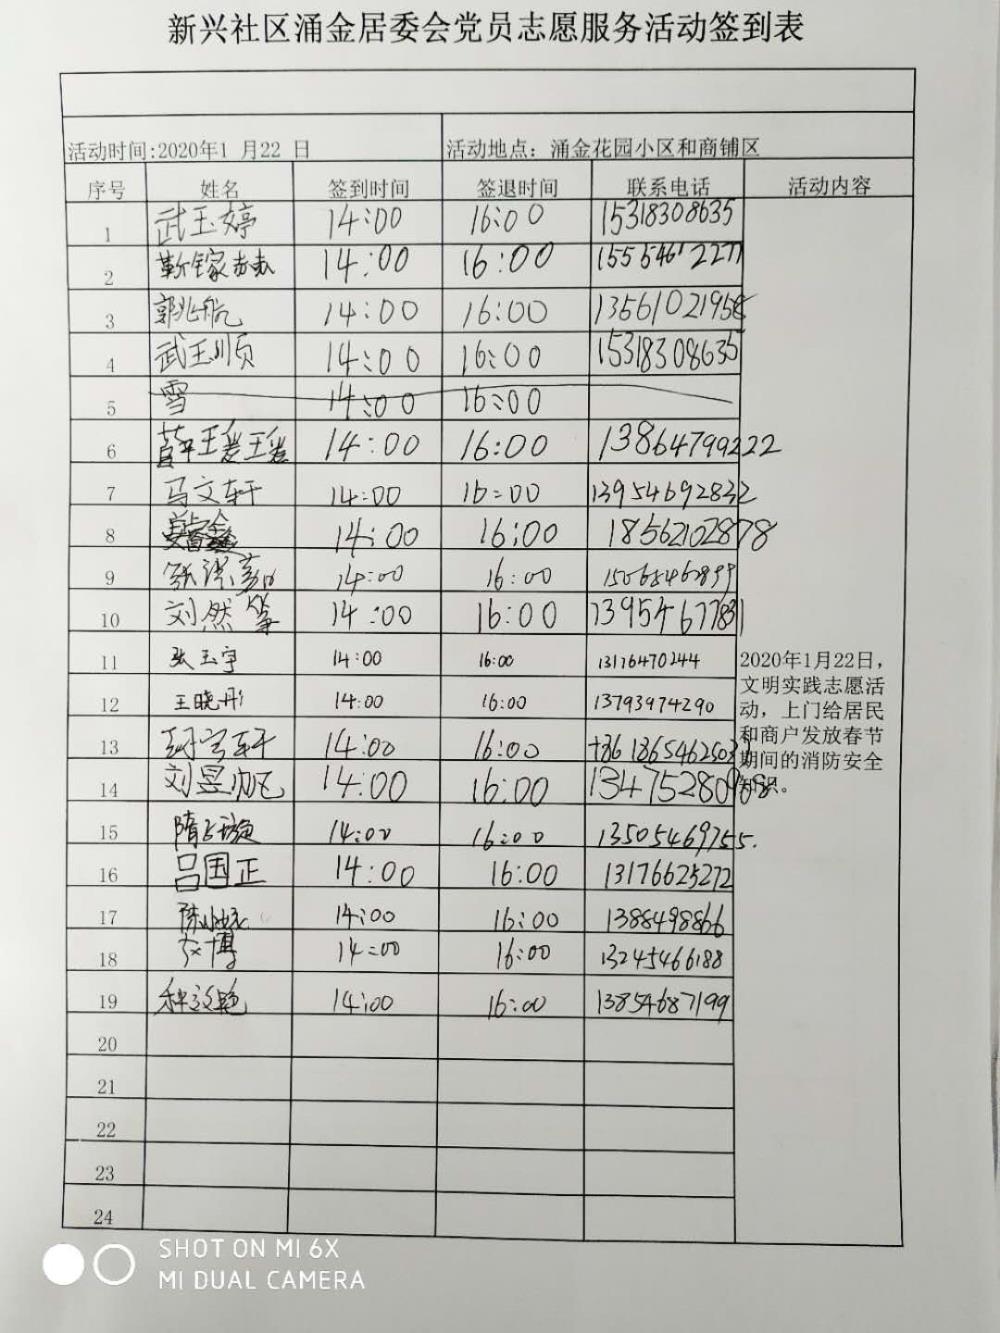 新兴社区涌金居委会党员志愿服务活动签到表
活动时间:2020年1 月22 日 活动地点：涌金花园小区和商铺区
序号 姓名 签到时间 签退时间 联系电话 活动内容
1 武玉婷 14:00 16:00 15318308635
2 14:00 16:00
3 郭兆航 14:00 16:00 13561021958
4 武玉顺 14:00 16:00 15318308635
5 雪 14:00 16:00
6 14:00 16:00 13864799222
7 马文轩 14:00 16:00 13954692832
8 14:00 16:00 18562102878
9 14:00 16:00
10 刘然 14:00 16:00 13954677831
11 张玉宇 14:00 16:00 13176470244
12 王晓彤 14:00 16:00 13793974290
13 14:00 16:00
14 刘昱帆 14:00 16:00 13475280968
15 14:00 16:00 13505469755.
16 吕国正 14:00 16:00 13176625272
17 14:00 16:00 1388498866
18 14:00 16:00 13245466188
19 14:00 16:00 13854687199
2020年1月22日，
文明实践志愿活
动，上门给居民
和商户发放春节
期间的消防安全
知识。
20
21
22
23
24
SHOT ON MI 6X
MI DUAL CAMERA